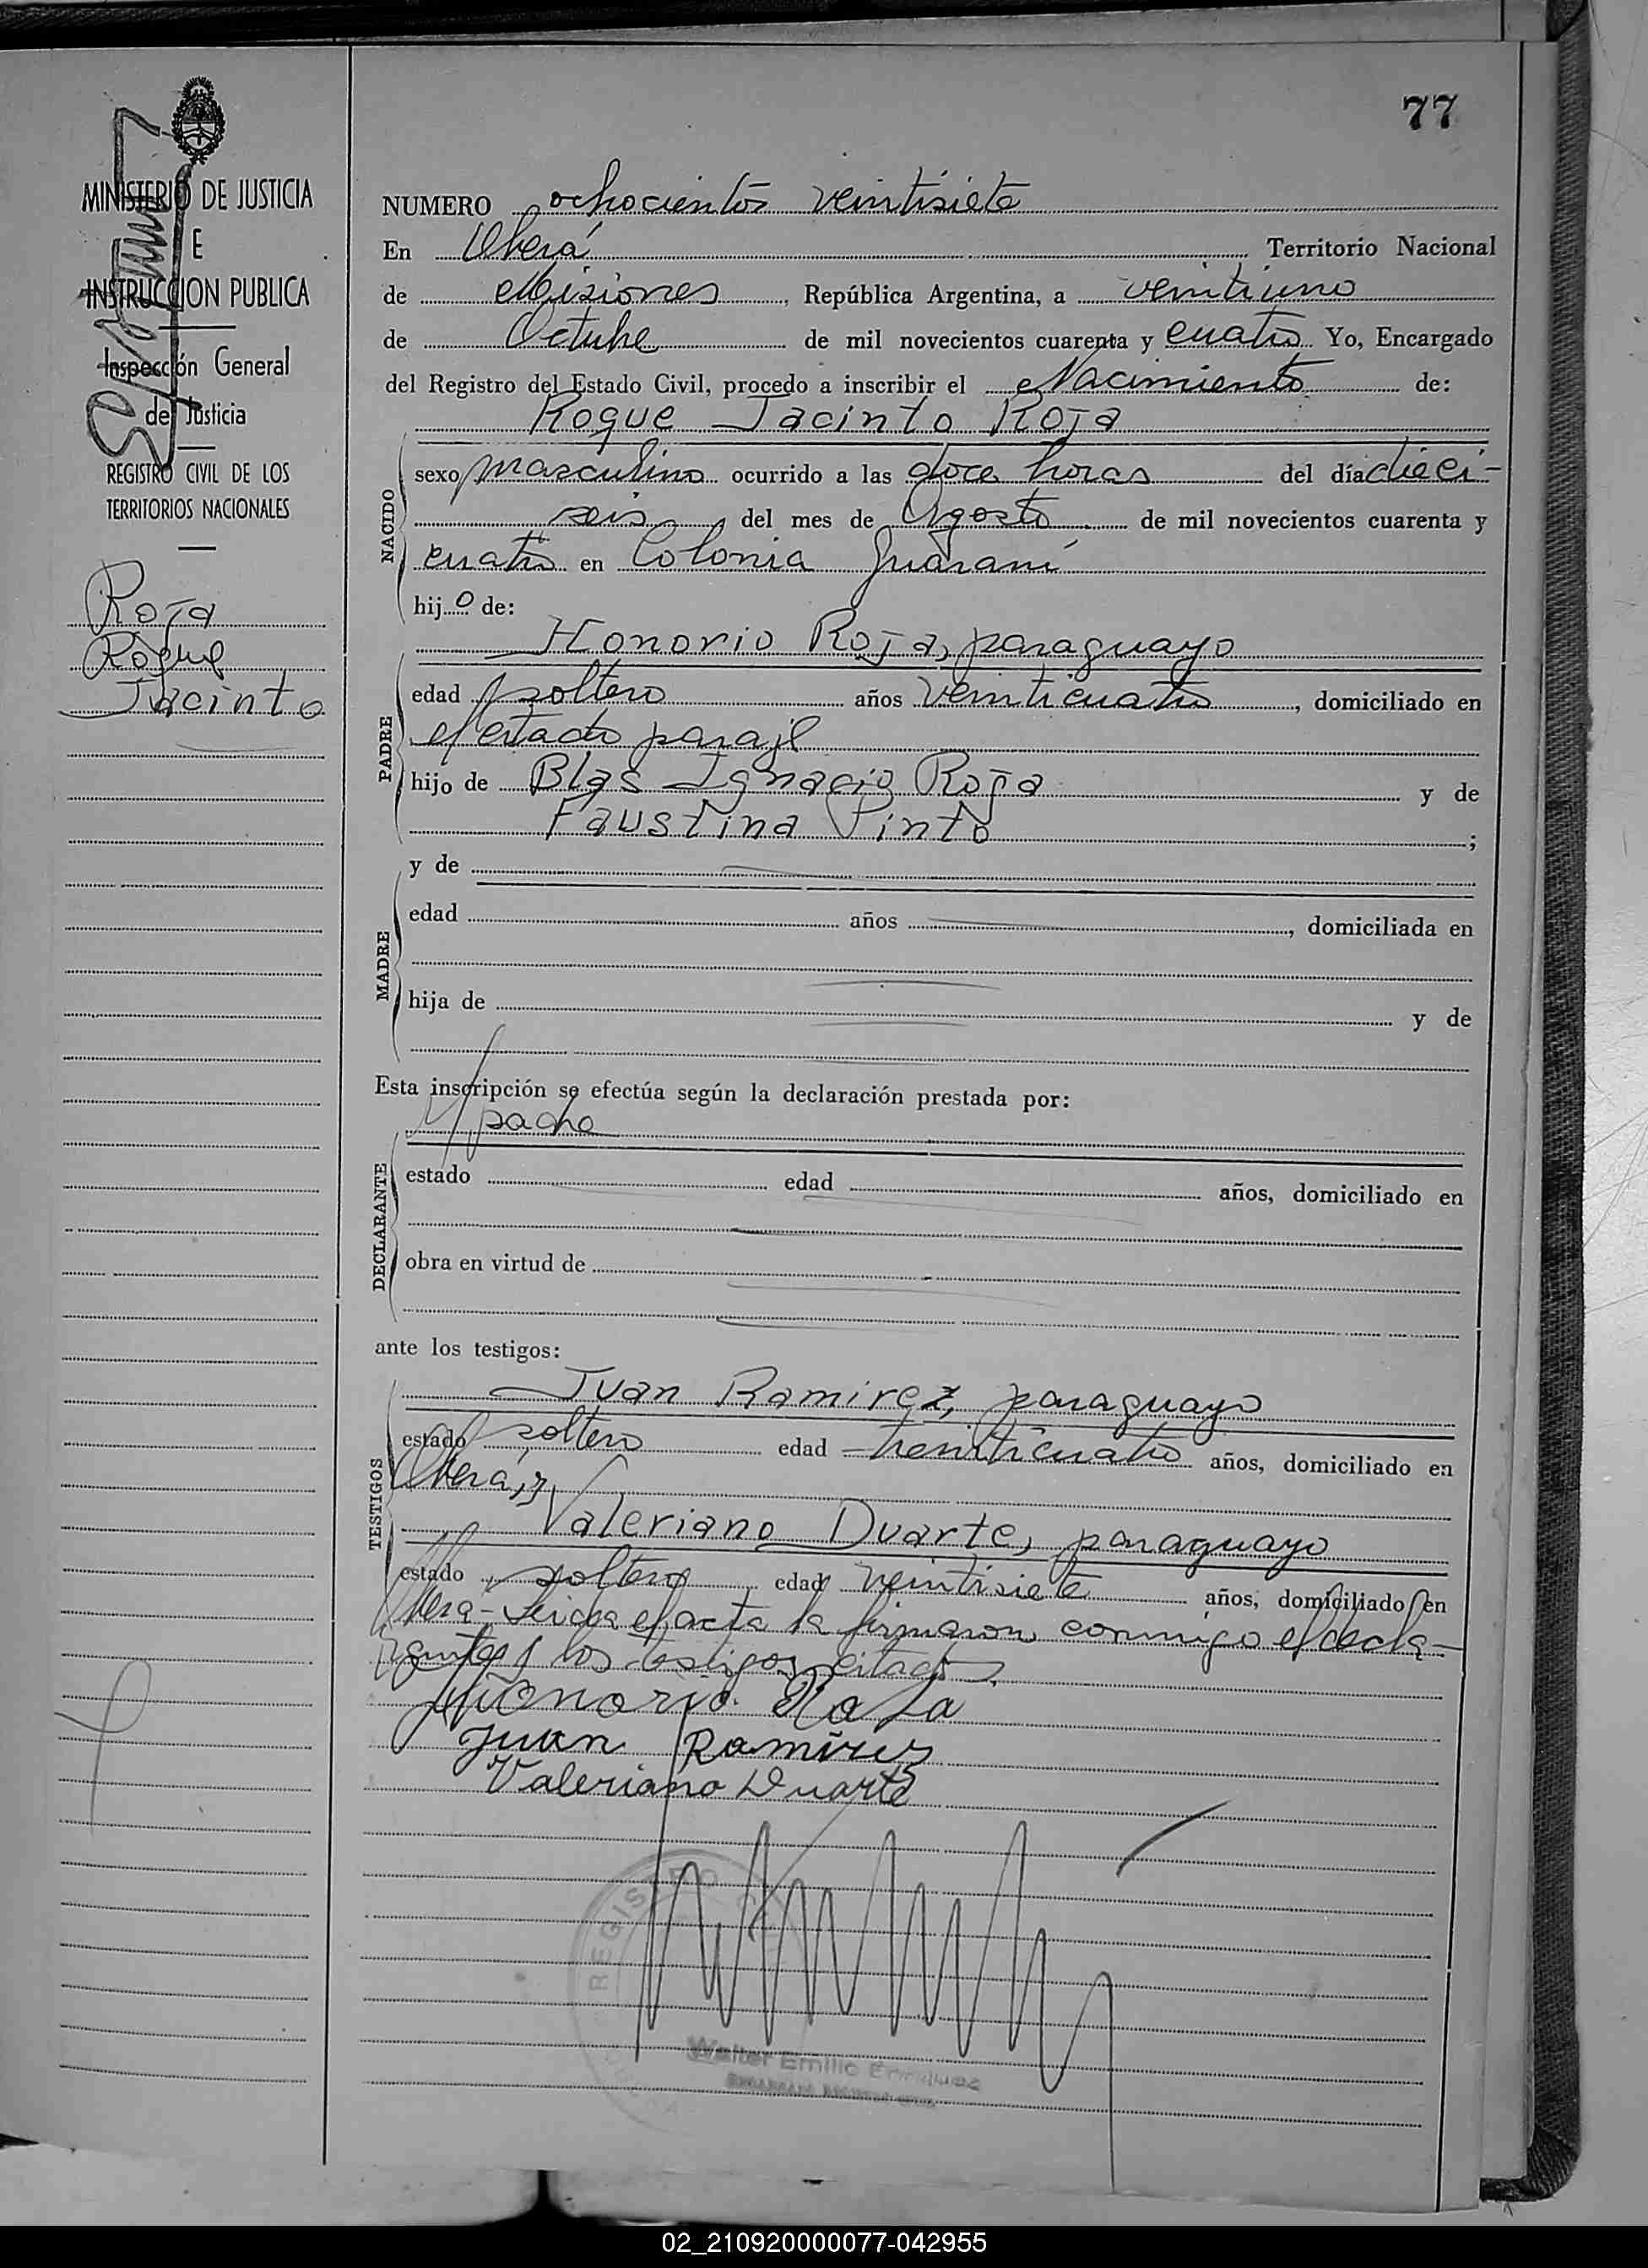 77
MINISTERIO DE JUSTICIA
E
INSTRUCCION PUBLICA
Inspección General
de Justicia
REGISTRO CIVIL DE LOS
TERRITORIOS NACIONALES
Roja
Roque
Jacinto
NUMERO ochocientos veintisiete
En Oberá Territorio Nacional
de Misiones, República Argentina, a veintiuno
de Octubre de mil novecientos cuarenta y cuatro Yo, Encargado
del Registro del Estado Civil, procedo a inscribir el Nacimiento de:
Roque Jacinto Roja
NACIDO
sexo masculino ocurrido a las doce horas del día dieci-
seis del mes de Agosto de mil novecientos cuarenta y
cuatro en Colonia Guaraní
hijo de:
Honorio Roja, paraguayo
PADRE
edad soltero años veinticuatro, domiciliado en
el citado paraje
hijo de Blas Ignacio Roja y de
Faustina Pinto ;
y de
MADRE
edad años , domiciliada en
hija de y de
Esta inscripción se efectúa según la declaración prestada por:
el padre
DECLARANTE
estado edad años, domiciliado en
obra en virtud de
ante los testigos:
TESTIGOS
Juan Ramirez, paraguayo
estado soltero edad veinticuatro años, domiciliado en
Oberá, y
Valeriano Duarte, paraguayo
estado soltero edad veintisiete años, domiciliado en
Oberá - Leida el acta la firmaron conmigo el decla-
rante y los testigos citados.
Honorio Roja
Juan Ramires
Valeriano Duarte
REGISTRO
Walter Emilio Enriquez
02_210920000077-042955